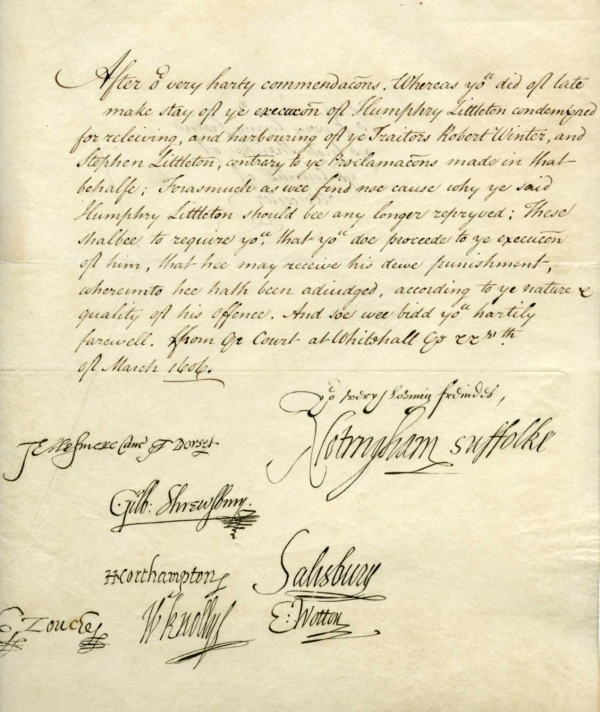 After oʳ very harty commendacōns. Whereas yoᵘ did oft late
make stay oft ye execucōn oft Humphry Littleton condempned
for releiving, and harbouring oft ye Traitors Robert Winter, and
Stephen Littleton, contrary to ye Proclamacōns made in that
behalfe; Forasmuch as wee find noe cause why ye said
Humphry Littleton should bee any longer repryved; These
shalbee to require yoᵘ, that yoᵘ doe proceede to ye execucōn
oft him, that hee may receive his dewe punishment,
whereunto hee hath been adiudged, according to ye nature &
quality oft his offence. And soe wee bidd yoᵘ hartily
farewell. From oʳ Court at Whitehall
oft March 1606.
Yoʳ very loving freindes,
TEllesmere Canc T Dorset
Notingham Suffolke
Gilb: Shrewsbury
HNorthampton Salisbury
E Zouche W Knollys E: Wotton